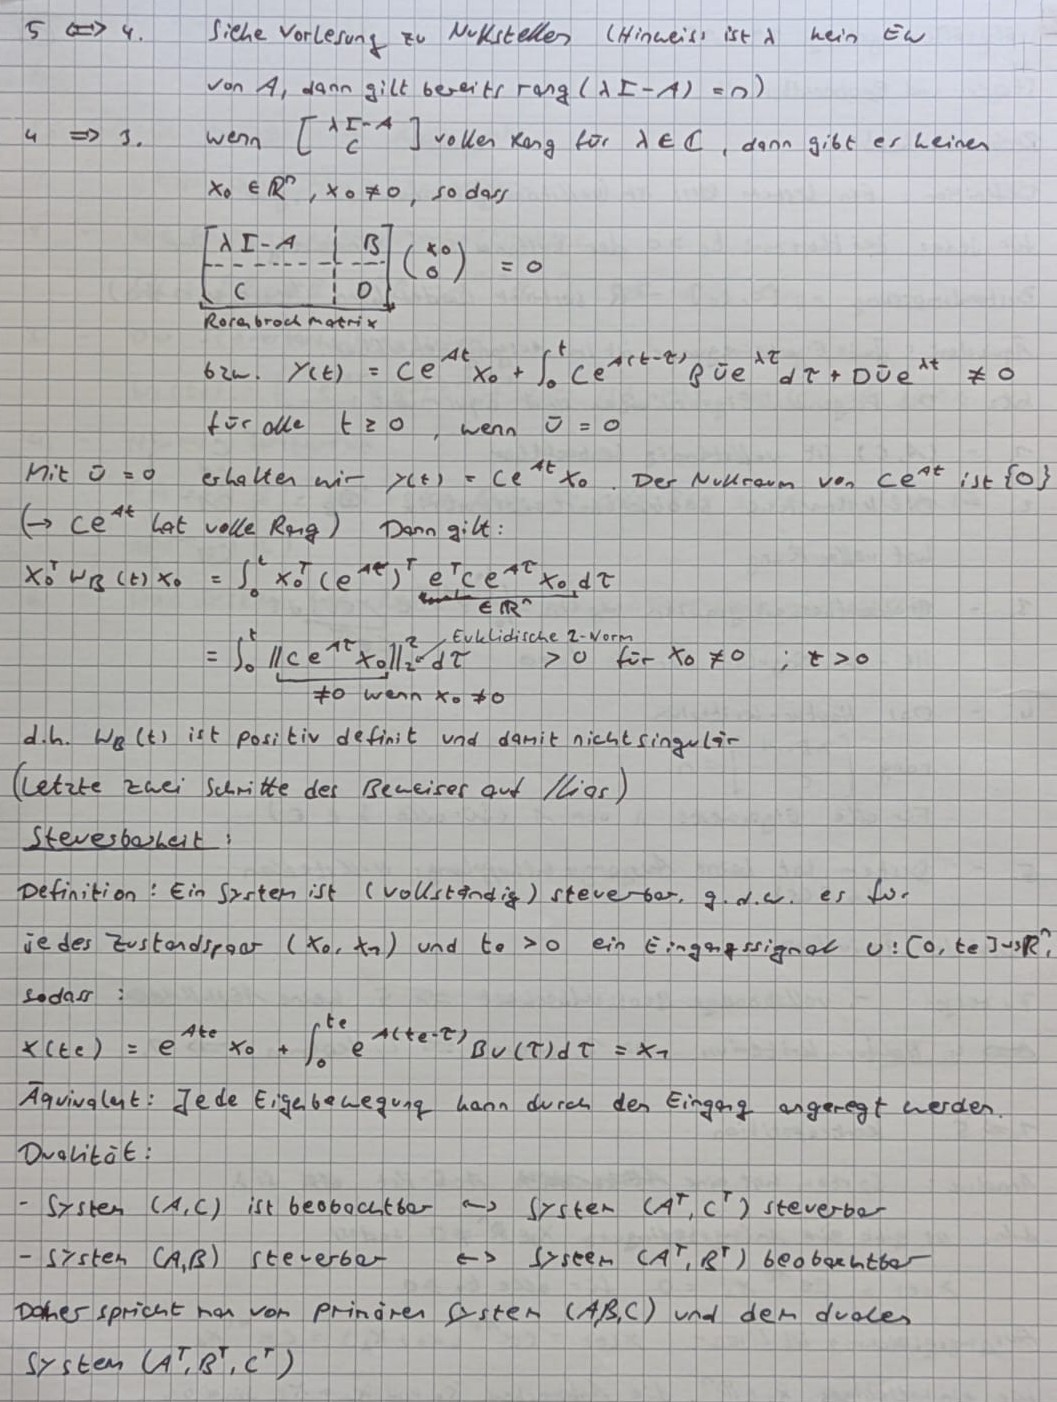 5 <=> 4. Siehe Vorlesung zu Nullstellen (Hinweis: ist λ kein EW
von A, dann gilt bereits rang(λI-A) = n)
4 => 3. wenn [λI-A C] voller Rang für λ ∈ ℂ, dann gibt es keinen
x₀ ∈ ℝⁿ, x₀ ≠ 0, sodass
[λI-A | B
C | D] (x₀ 0) = 0
Rosenbrockmatrix
bzw. y(t) = Ce^{At} x₀ + ∫₀^t Ce^{A(t-τ)} B ū e^{λτ} dτ + Dū e^{λt} ≠ 0
für alle t ≥ 0, wenn ū = 0
Mit ū = 0 erhalten wir y(t) = Ce^{At} x₀. Der Nullraum von Ce^{At} ist {0}
(→ Ce^{At} hat volle Rang) Dann gilt:
x₀ᵀ W_B(t) x₀ = ∫₀^t x₀ᵀ (e^{Aτ})ᵀ cᵀ C e^{Aτ} x₀ dτ
∈ ℝⁿ
= ∫₀^t ||C e^{Aτ} x₀||₂² dτ > 0 für x₀ ≠ 0 ; t > 0
Euklidische 2-Norm
≠0 wenn x₀ ≠ 0
d.h. W_B(t) ist positiv definit und damit nichtsingulär
(Letzte zwei Schritte des Beweises auf Ilias)
Steuerbarkeit:
Definition: Ein System ist (vollständig) steuerbar, g.d.w. es für
jedes Zustandspaar (x₀, x₁) und te > 0 ein Eingangssignal u: [0, te] → ℝⁿ,
sodass:
x(te) = e^{Ate} x₀ + ∫₀^{te} e^{A(te-τ)} Bu(τ)dτ = x₁
Äquivalent: Jede Eigenbewegung kann durch den Eingang angeregt werden.
Dualität:
- System (A,C) ist beobachtbar <-> System (Aᵀ, Cᵀ) steuerbar
- System (A,B) steuerbar <-> System (Aᵀ, Bᵀ) beobachtbar
Daher spricht man vom primären System (A,B,C) und dem dualen
System (Aᵀ, Bᵀ, Cᵀ)